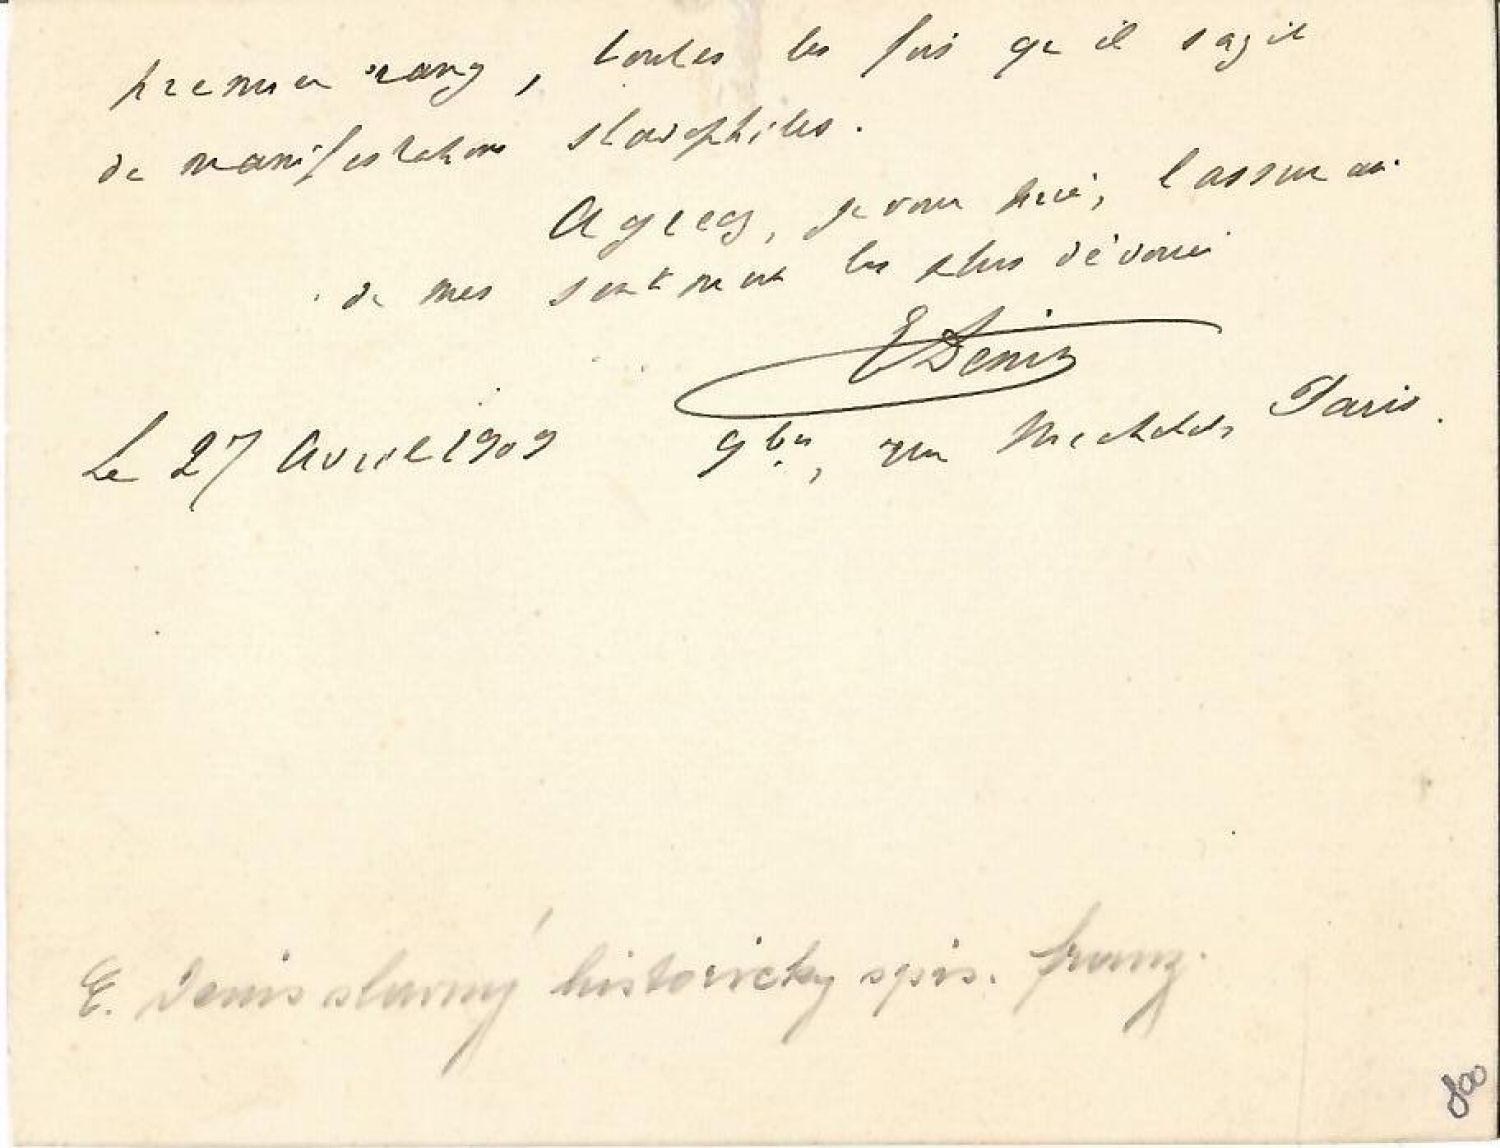 premier rang, toutes les fois qu'il s'agit
de manifestations slavophiles.
Agréez, je vous prie, l'assurance
de mes sentiments les plus dévoués
E Denis
Le 27 Avril 1909 9 bis, rue Michelet, Paris.
E. Denis slavný historický spis. franz.
800